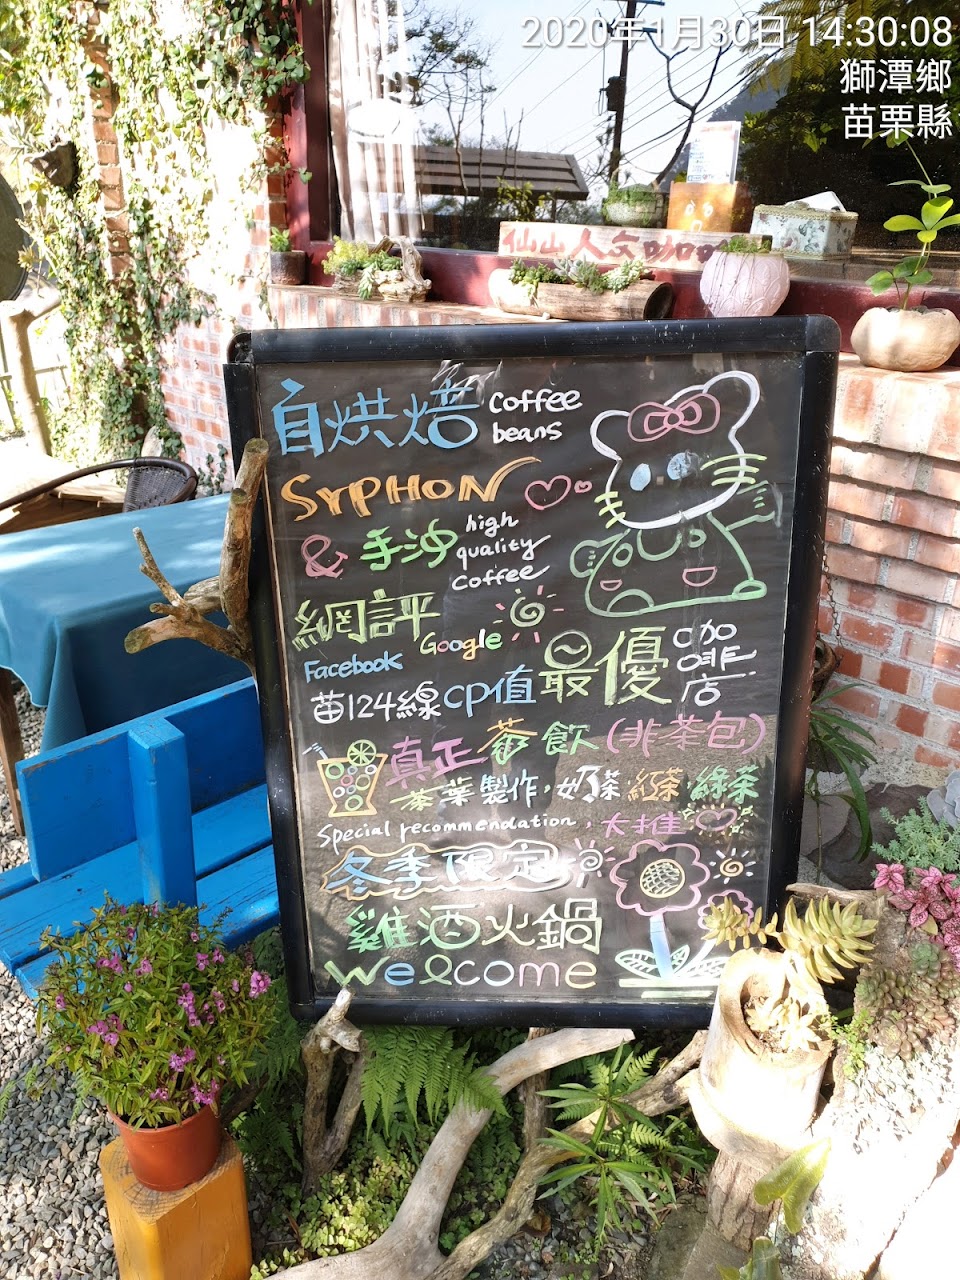 2020年1月30日 14:30:08
獅潭鄉
苗栗縣
仙山人文咖
自烘焙 coffee beans
SYPHON
& 手沙 high quality coffee
網評 Google
Facebook
苗124線 cp值 最優 咖啡店
真正茶飲(非茶包)
茶葉製作,奶茶 紅茶 綠茶
Special recommendation, 大推
冬季限定
雞酒火鍋
Welcome